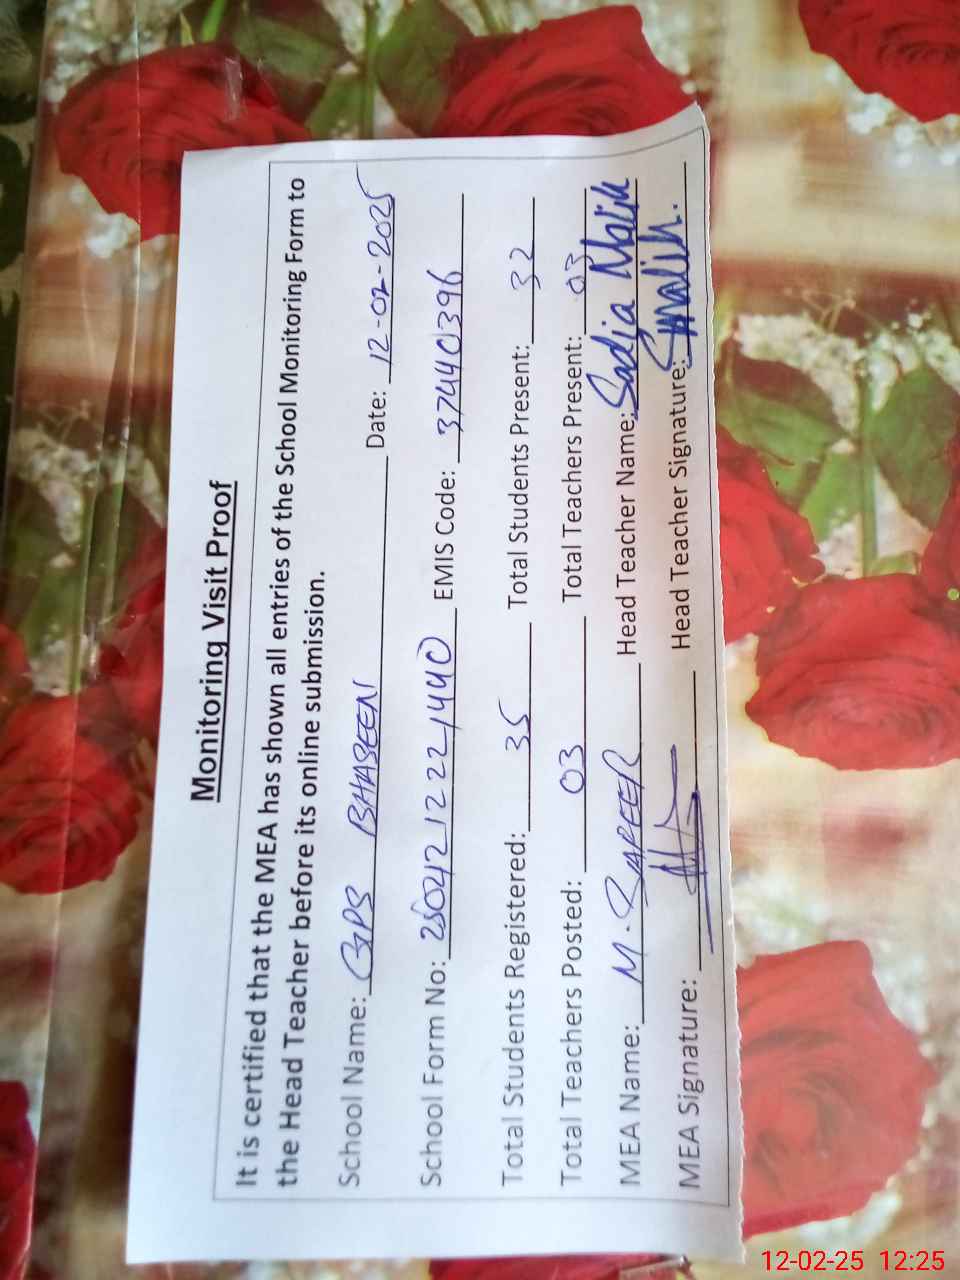 Monitoring Visit Proof
It is certified that the MEA has shown all entries of the School Monitoring Form to
the Head Teacher before its online submission.
School Name: GPS BHABEEN Date: 12-02-2025
School Form No: 25042121221440 EMIS Code: 37440396
Total Students Registered: 35 Total Students Present: 32
Total Teachers Posted: 03 Total Teachers Present: 03
MEA Name: M. Head Teacher Name: Sadia Malik
MEA Signature: Head Teacher Signature: Smalik.
12-02-25 12:25